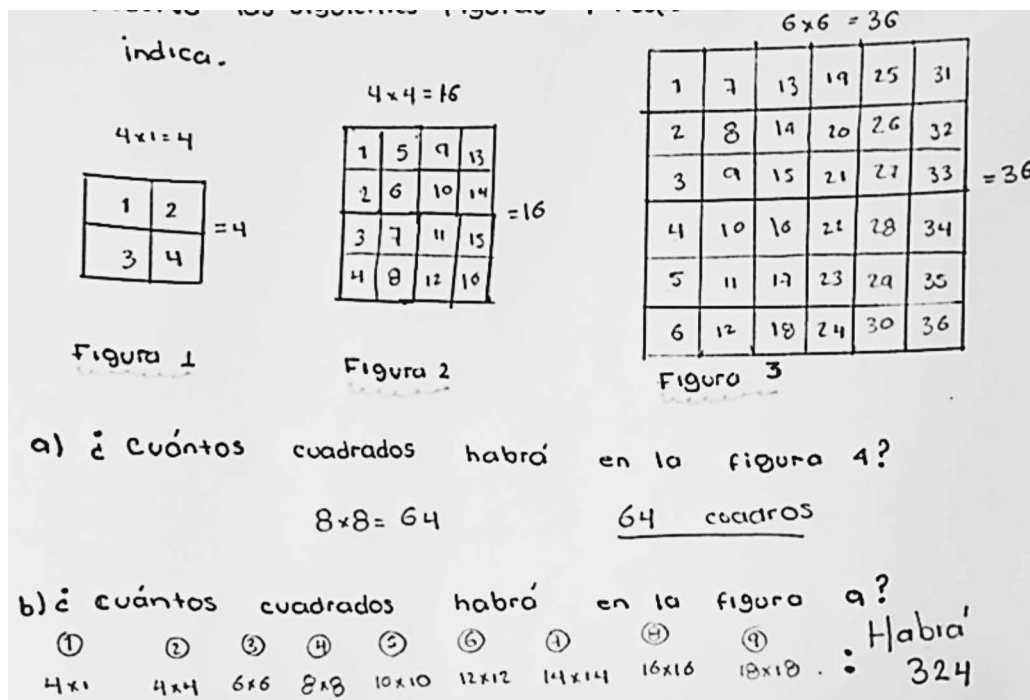 indica.
4x1=4
1 2
3 4
=4
Figura 1
4x4=16
1 5 9 13
2 6 10 14
3 7 11 15
4 8 12 16
=16
Figura 2
6x6 = 36
1 7 13 19 25 31
2 8 14 20 26 32
3 9 15 21 27 33
4 10 16 22 28 34
5 11 17 23 29 35
6 12 18 24 30 36
= 36
Figura 3
a) ¿Cuántos cuadrados habrá en la figura 4?
8x8= 64 64 cuadros
b) ¿cuántos cuadrados habrá en la figura 9?
① ② ③ ④ ⑤ ⑥ ⑦ ⑧ ⑨
4x1 4x4 6x6 8x8 10x10 12x12 14x14 16x16 18x18 . : Habrá
324